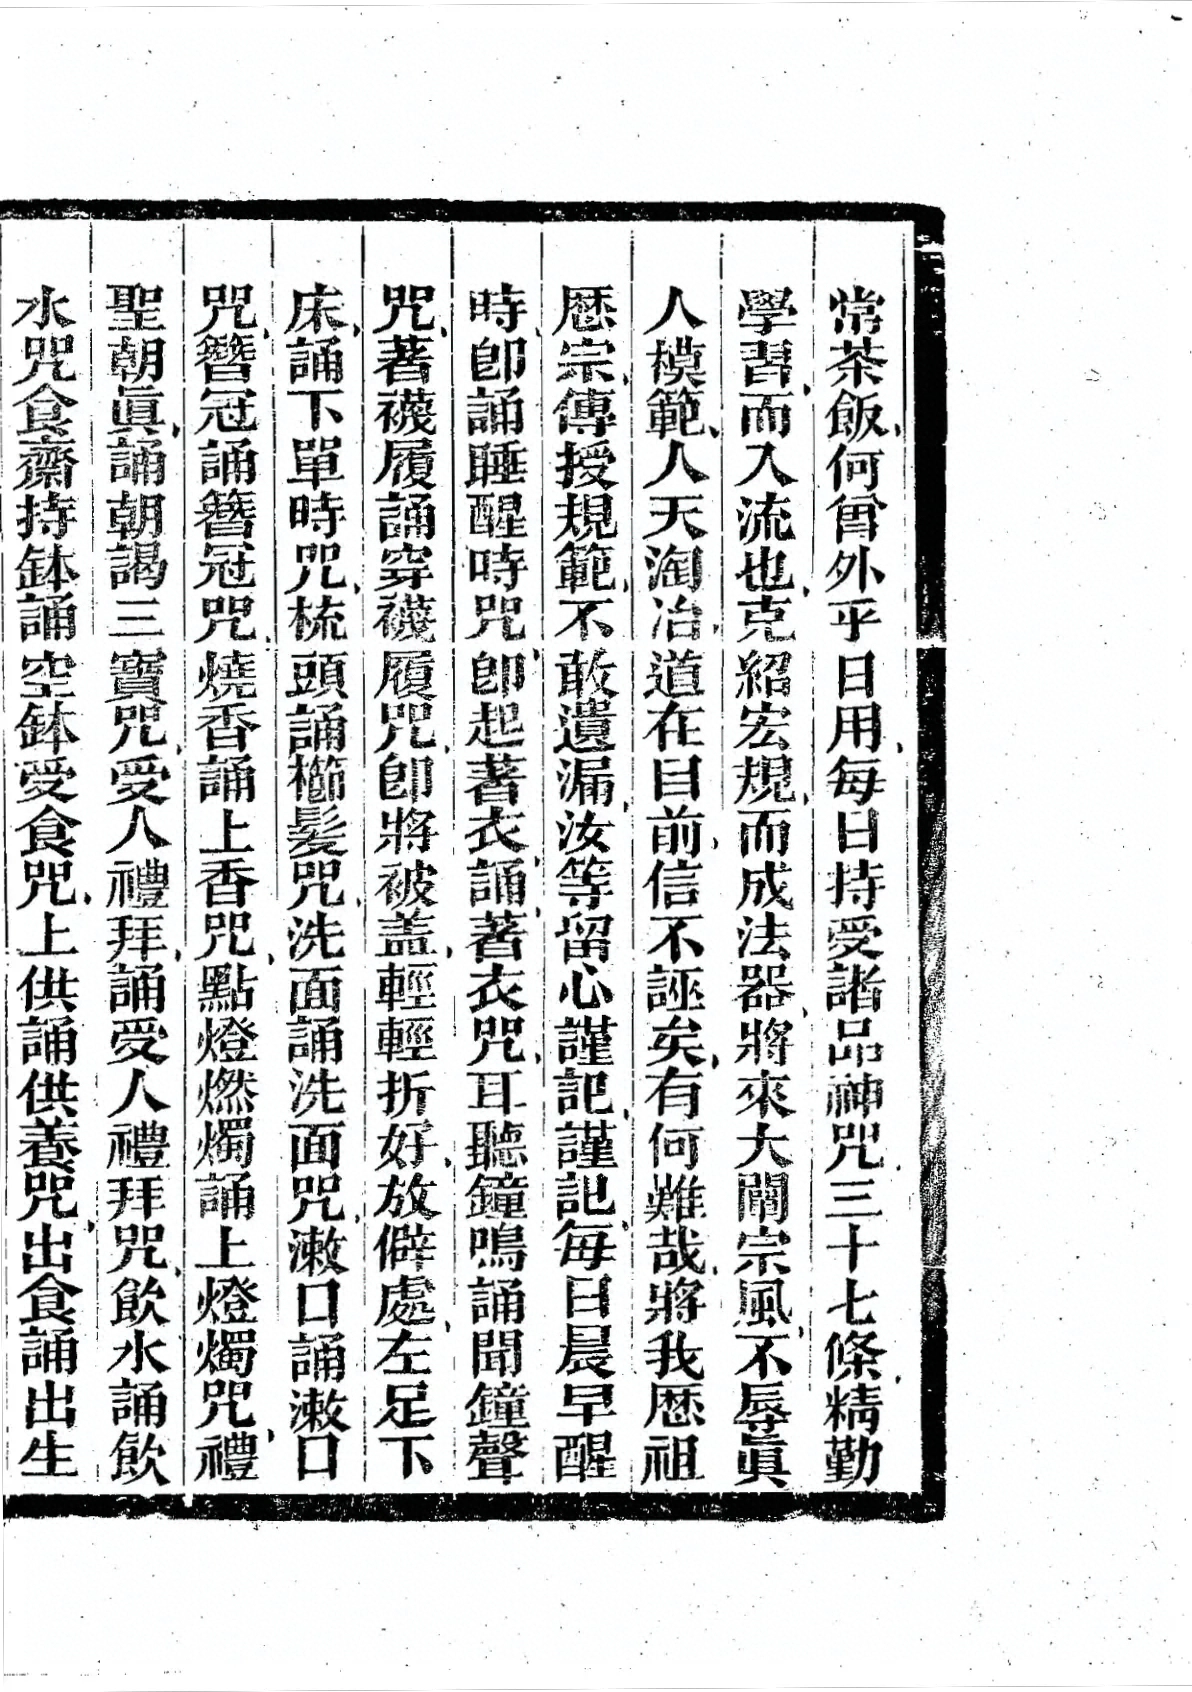 常茶飯、何曾外乎日用、每日持受諸品神咒三十七條、精勤
學習、而入流也、克紹宏規、而成法器、將來大闡宗風、不辱眞
人模範、人天淘冶、道在目前、信不誣矣、有何難哉、將我歷祖
歷宗、傳授規範、不敢遺漏、汝等留心謹記、謹記、每日晨早醒
時、卽誦睡醒時咒、卽起著衣、誦著衣咒、耳聽鐘鳴誦聞鐘聲
咒、著襪履誦穿襪履咒、卽將被盖、輕輕折好、放僻處、左足下
床、誦下單時咒、梳頭誦櫛髮咒、洗面誦洗面咒、漱口誦漱口
咒、簪冠誦簪冠咒、燒香誦上香咒、點燈燃燭誦上燈燭咒、禮
聖朝眞、誦朝謁三寶咒、受人禮拜、誦受人禮拜咒、飲水誦飲
水咒食齋持鉢誦空鉢受食咒、上供誦供養咒、出食誦出生